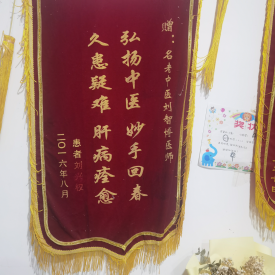 赠：名老中医刘智博医师
弘扬中医 妙手回春
久患疑难 肝病痊愈
患者刘
二〇一六年八月
奖状